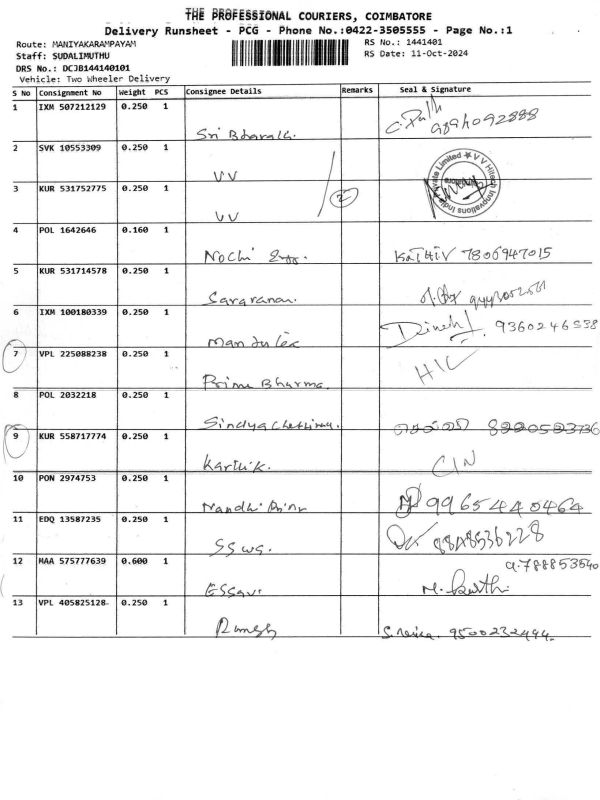 THE PROFESSIONAL COURIERS, COIMBATORE
Delivery Runsheet - PCG - Phone No.:0422-3505555 - Page No.:1
Route: MANIYAKARAMPAYAM
RS No.: 1441401
Staff: SUDALIMUTHU
RS Date: 11-Oct-2024
DRS No.: DCJB144140101
Vehicle: Two Wheeler Delivery
S No Consignment No Weight PCS Consignee Details Remarks Seal & Signature
1 IXM 507212129 0.250 1
Sri Bharath.
2 SVK 10553309 0.250 1
VV
3 KUR 531752775 0.250 1
VV 2
VV Hitech Innovations India Private Limited
4 POL 1642646 0.160 1
Nochi KATHIV 7806947015
5 KUR 531714578 0.250 1
Saravanan.
6 IXM 100180339 0.250 1
Dinesh 9360246538
7 VPL 225088238 0.250 1
Prime Bharma. HIC
8 POL 2032218 0.250 1
9 KUR 558717774 0.250 1
Karthik. CIN
10 PON 2974753 0.250 1
9965440464
11 EDQ 13587235 0.250 1
8848536228
12 MAA 575777639 0.600 1
13 VPL 405825128 0.250 1
Ramesh 9500232494.